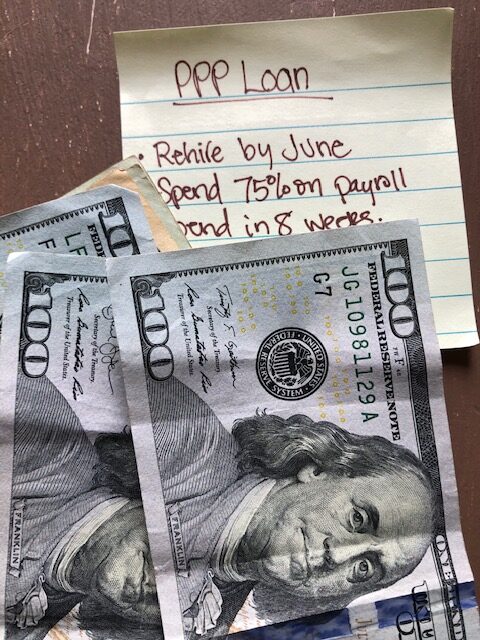 PPP Loan
• Rehire by June
Spend 75% on payroll
in 8 weeks.
100
FEDERAL RESERVE NOTE
JG10981129A
G7
UNITED STATES
FEDERAL RESERVE SYSTEM
Secretary of the Treasury.
Treasurer of the United States.
100
FRANKLIN
100
Secretary of the Treasury.
Treasurer of the United States.
100
FRANKLIN